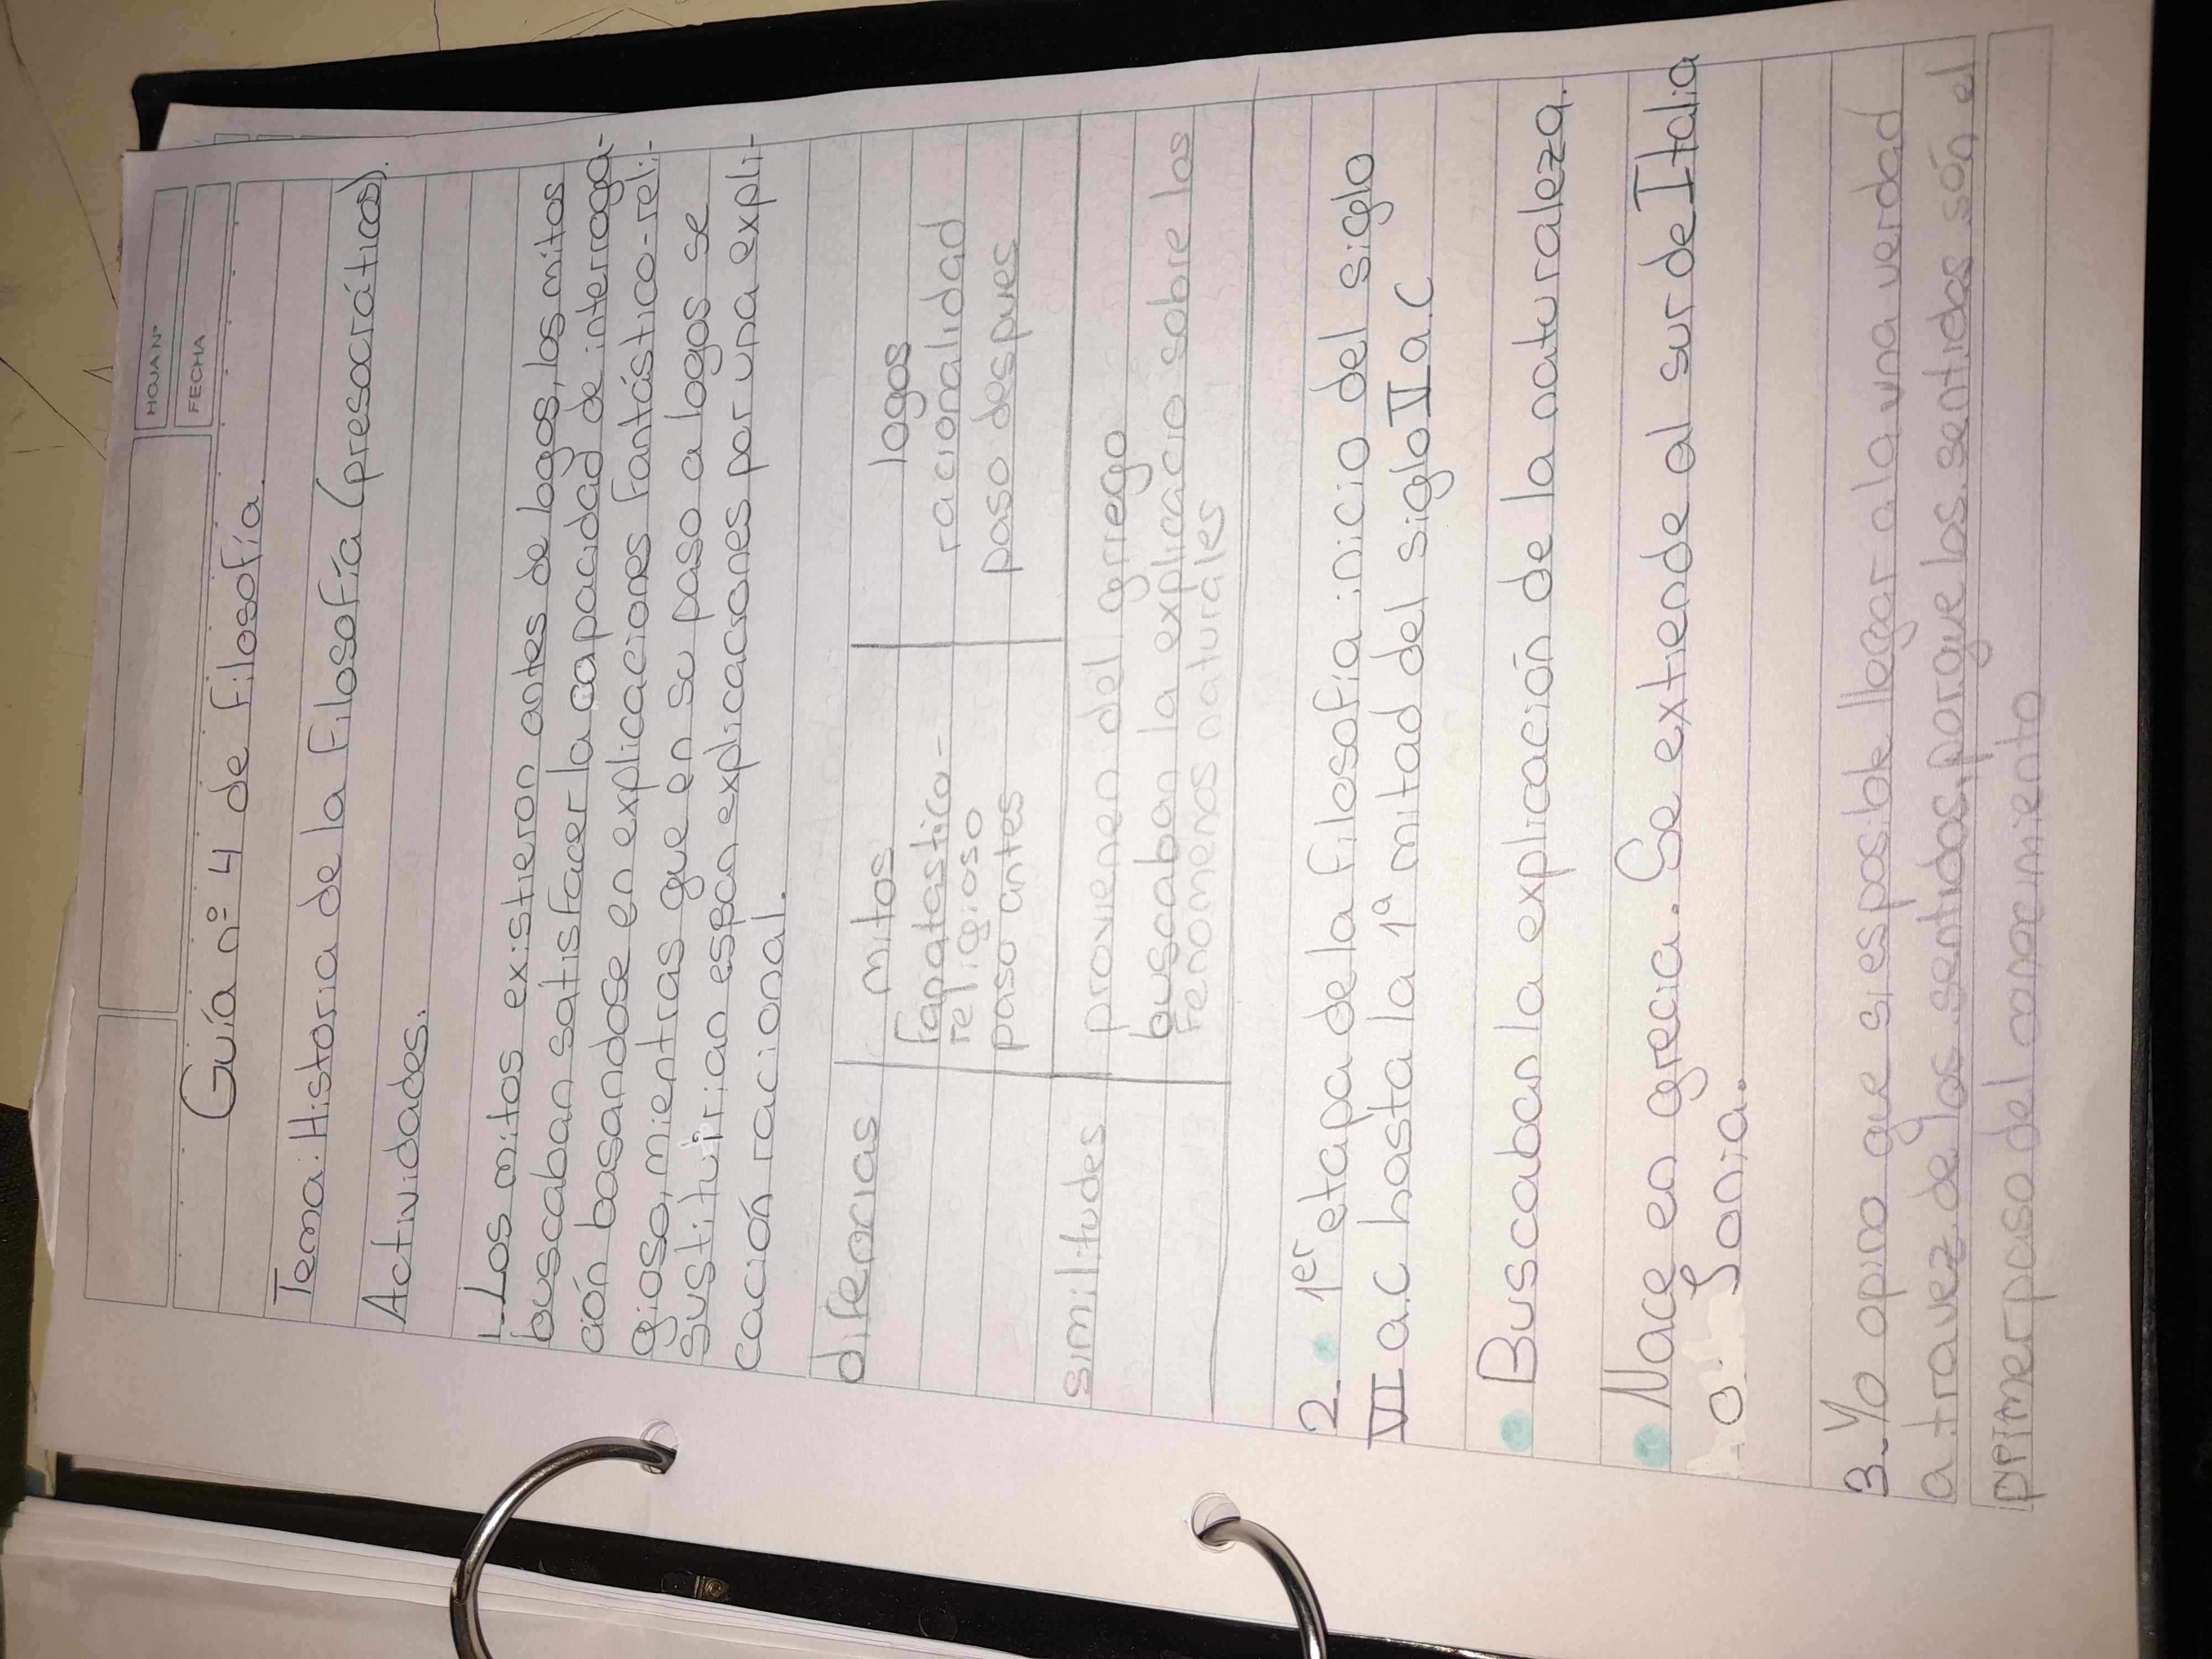 HOJA Nº
FECHA
Guía nº 4 de Filosofía.
Tema: Historia de la Filosofía (presocráticos).
Actividades:
1. Los mitos existieron antes de logos, los mitos
buscaban satisfacer la capacidad de interroga-
ción basandose en explicaciones fantástico-reli-
gioso, mientras que en su paso a logos se
sustituirian esban explicaciones por una expli-
cación racional.
diferencias mitos logos
fanatastico- racionalidad
religioso paso despues
paso antes
similitudes provienen del griego
buscaban la explicacio sobre los
fenomenos naturales
2. 1er etapa de la filosofía inicio del siglo
VI a.c hasta la 1ª mitad del siglo V a.C
Buscaban la explicación de la naturaleza.
Nace en grecia. Se extiende al sur de Italia
o Jonia.
3. Yo opino que si es posible llegar a la una verdad
a travez de los sentidos, porque los sentidos són el
primer paso del conocimiento